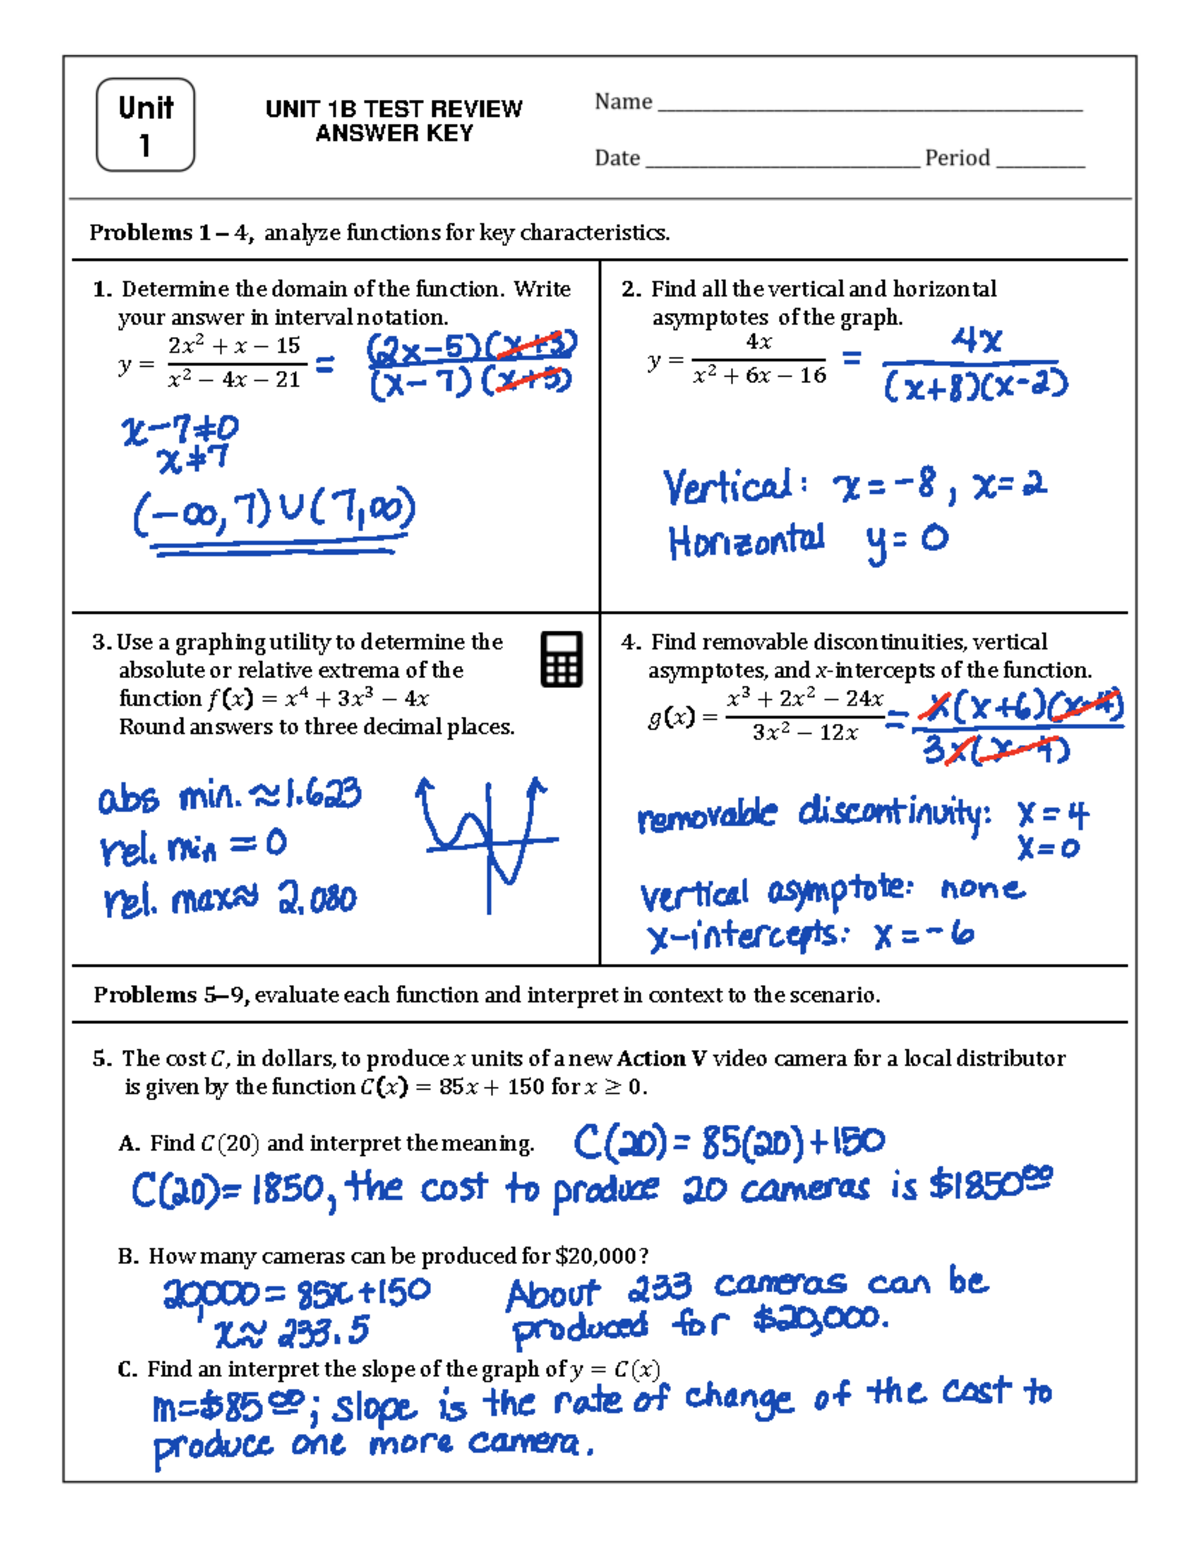 Unit
1
UNIT 1B TEST REVIEW
ANSWER KEY
Name
Date Period
Problems 1 – 4, analyze functions for key characteristics.
1. Determine the domain of the function. Write
your answer in interval notation.
y = (2x² + x − 15)/(x² − 4x − 21) = (2x−5)(x+3)/(x−7)(x+3)
x−7≠0
x≠7
(−∞,7)∪(7,∞)
2. Find all the vertical and horizontal
asymptotes of the graph.
y = 4x/(x² + 6x − 16) = 4x/(x+8)(x-2)
Vertical: x=-8, x=2
Horizontal y=0
3. Use a graphing utility to determine the
absolute or relative extrema of the
function f(x) = x⁴ + 3x³ − 4x
Round answers to three decimal places.
abs min. ≈1.623
rel. min = 0
rel. max≈ 2.080
4. Find removable discontinuities, vertical
asymptotes, and x-intercepts of the function.
g(x) = (x³ + 2x² − 24x)/(3x² − 12x) = x(x+6)(x-4)/3x(x-4)
removable discontinuity: x=4
x=0
vertical asymptote: none
x-intercepts: x=-6
Problems 5–9, evaluate each function and interpret in context to the scenario.
5. The cost C, in dollars, to produce x units of a new Action V video camera for a local distributor
is given by the function C(x) = 85x + 150 for x ≥ 0.
A. Find C(20) and interpret the meaning. C(20)= 85(20)+150
C(20)= 1850, the cost to produce 20 cameras is $1850⁰⁰
B. How many cameras can be produced for $20,000?
20,000= 85x+150
x≈ 233.5
About 233 cameras can be
produced for $20,000.
C. Find an interpret the slope of the graph of y = C(x)
m=$85⁰⁰; slope is the rate of change of the cost to
produce one more camera.